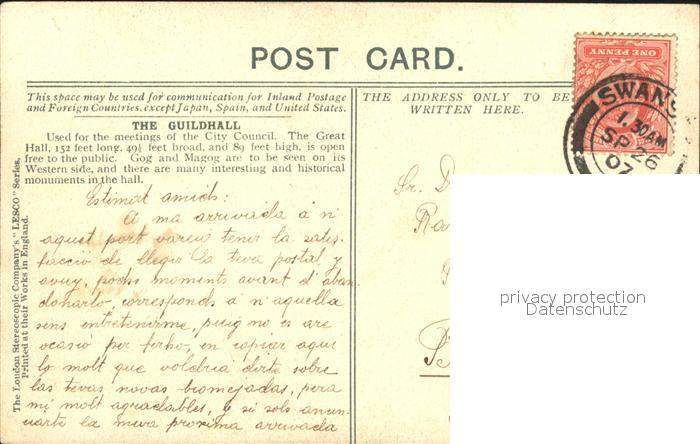 POST CARD.
ONE PENNY
SWANS
1.30AM
SP 26
07
This space may be used for communication for Inland Postage
and Foreign Countries, except Japan, Spain, and United States.
THE ADDRESS ONLY TO BE
WRITTEN HERE.
THE GUILDHALL
Used for the meetings of the City Council. The Great
Hall, 152 feet long, 49½ feet broad, and 89 feet high, is open
free to the public. Gog and Magog are to be seen on its
Western side, and there are many interesting and historical
monuments in the hall.
The London Stereoscopic Company's "LESCO" Series,
Printed at their Works in England.
Estimat amich:
A ma arrivada á n'
aquet port vareig tenir la satis-
facció de llegir la teva postal y
avuy, pochs moments avant d'aban
donarlo, corresponds á n'aquella
sens entretenirme, puig no es are
ocasió per ferho, en copiar aqui
lo molt que voldria dirte sobre
las tevas novas bromejadas, pera
mi molt agradables, y si sols anun-
ciarte la meva proxima arrivada
Sr. D
privacy protection
Datenschutz